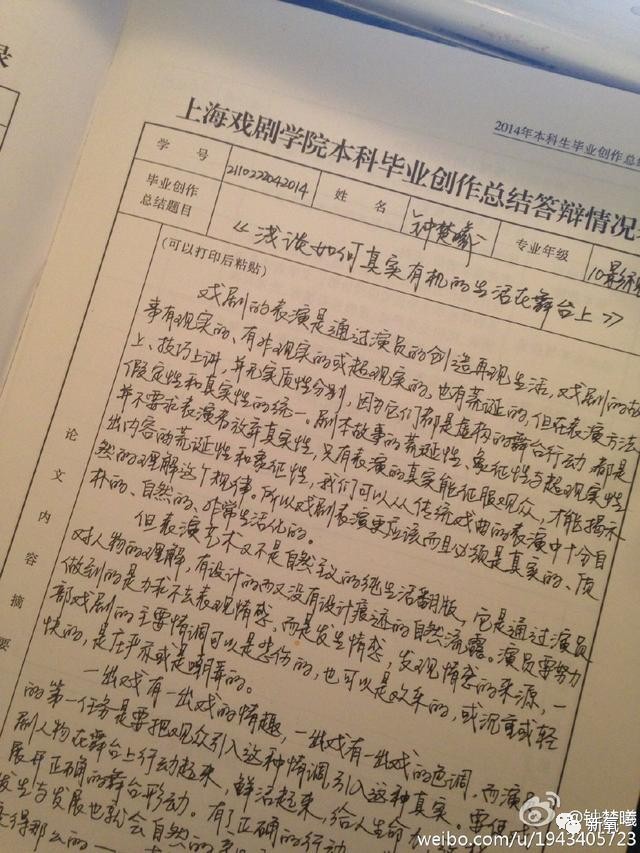 录
2014年本科生毕业创作总结
上海戏剧学院本科毕业创作总结答辩情况
学 号
2110222042014
姓 名
钟楚曦
专业年级
10
毕业创作
总结题目
《浅谈如何真实有机的生活在舞台上》
(可以打印后粘贴)
论
文
内
容
摘
要
戏剧的表演是通过演员的创造再现生活,戏剧的故
事有现实的、有非现实的或超现实的,也有荒诞的,但在表演方法
上、技巧上讲,并无实质性分别,因为它们都是虚构的舞台行动,都是
假定性和真实性的统一。剧本故事的荒诞性、象征性与超现实性
并不要求表演者放弃真实性,只有表演的真实能征服观众,才能揭示
出内容的荒诞性和象征性,我们可以从传统戏曲的表演中十分自
然的理解这个规律。所以戏剧表演更应该而且必须是真实的、质
朴的、自然的、非常生活化的。
但表演艺术又不是自然主义的纯生活翻版,它是通过演员
对人物的理解,有设计的而又没有设计痕迹的自然流露。演员要努力
做到的是力求不去表现情感,而是发生情感,发现情感的来源,一
部戏剧的主要情调可以是悲伤的,也可以是欢乐的,或沉重或轻
快的,是庄严亦或是嘲弄的。
一出戏有一出戏的情趣,一出戏有一出戏的色调,而演员
的第一任务是要把观众引入这种情调,引入这种真实。要使
剧人物在舞台上行动起来,鲜活起来,给人生命力
展开正确的舞台形动。有了正确的行动
发生与发展也就会自然的
得那么的一
@钟楚曦
新氧
weibo.com/u/1943405723